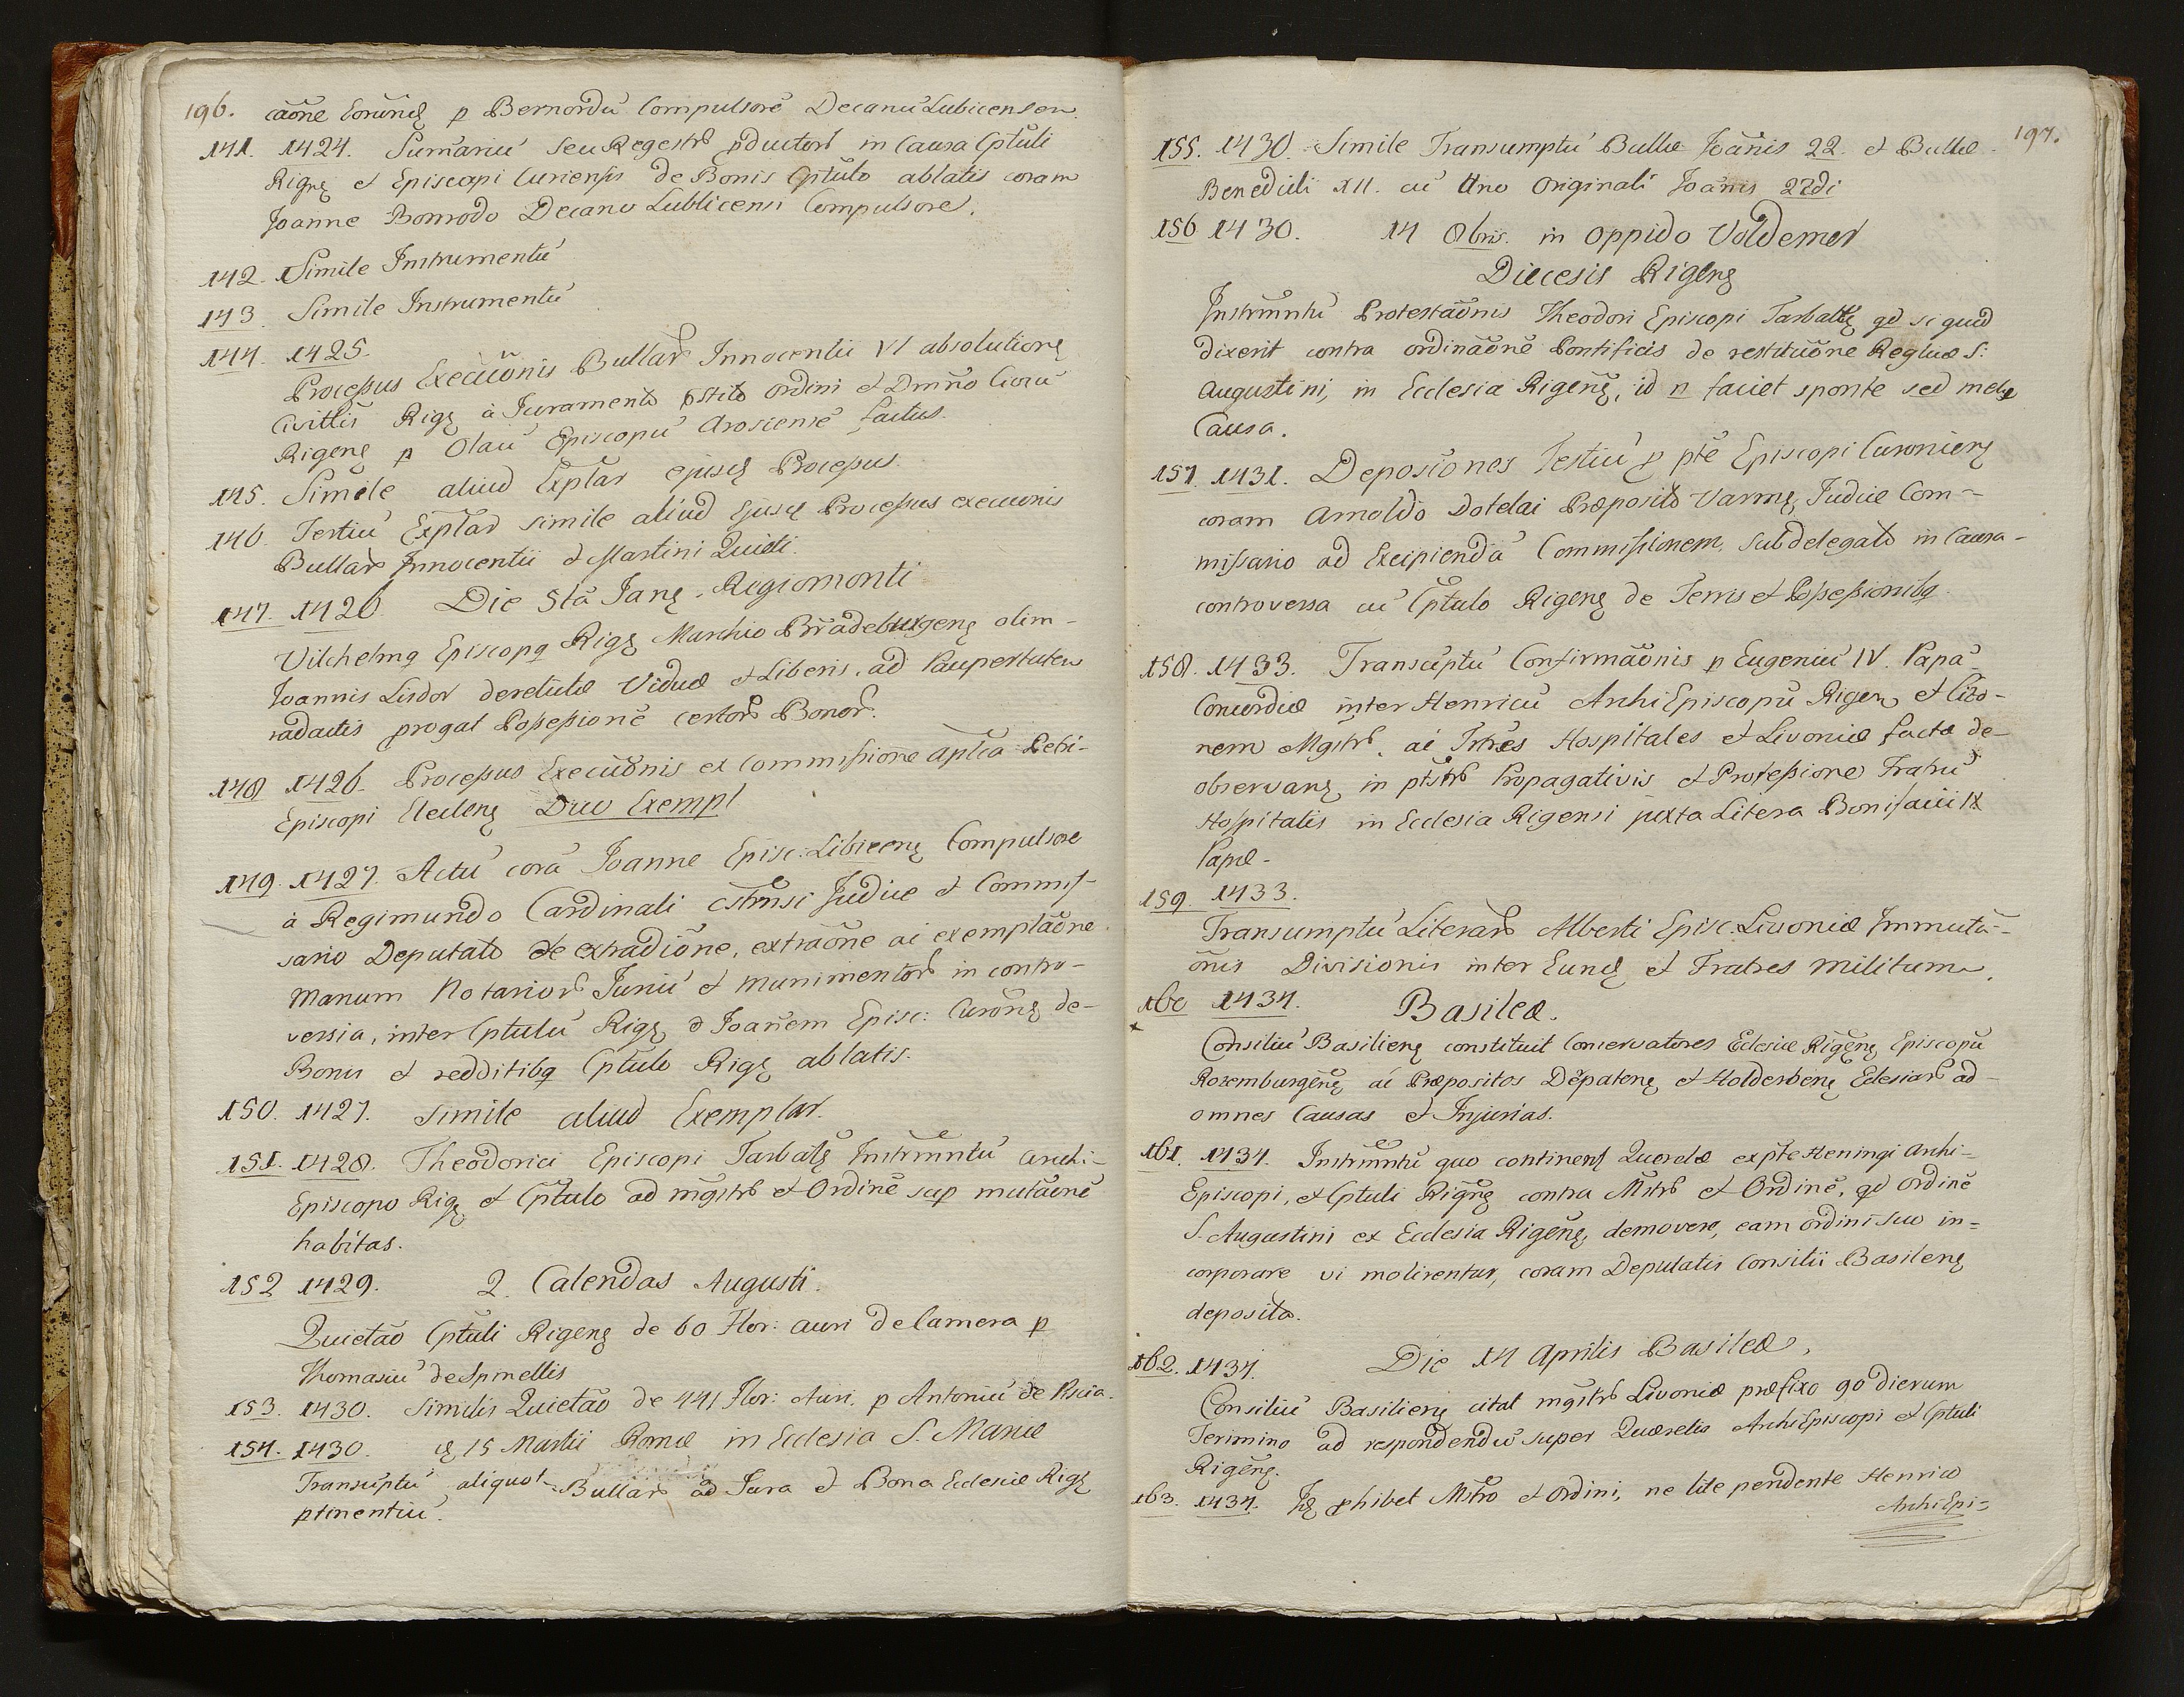 196. cāōne Eorundē p Bernordū Compulsorē Decanū Lubicensem.
141. 1424. Sumāriū seu Regestrʳ pductorʳ in Causa Cptuli
Rignę et Episcopi Curiensis de Bonis Cptulo ablatis coram
Joanne Bomrodo Decano Lublicensi Compulsore.
142. Simile Instrumentū
143. Simile Instrumentū
144. 1425.
Proceſsus Execūōnis Bullarʳ Innocentii VI absolutionę
Civittis Rigę à Juramento pstito Ordini et Dmño
Rigenę p Olaū Episcopū Arosiensē factus.
145. Simile aliud Exp̄lar ejusdę Proceſsus.
146. Tertiū Exp̄lar simile aliud Ejusdę Proceſsus execūonis
Bullarʳ Innocentii et Martini Quinti.
147. 1426 Die 5tā Janę. Regiomonti
Vilchelmq Episcopq Rigę Marchio Brādeburgenę olim
Joannis Lisdor deretictæ Viduæ et Liberis, ad Paupertatem
radactis progat Poſseſsionē certorʳ Bonorʳ.
148 1426. Proceſsus Execūōnis ex Commiſsione Aptca Petri
Episcopi Duo Exempl
149. 1427. Actū corā Joanne Episc: Libicenę Compulsore
à Regimundo Cardinali Judice et Commiſ-
sario Deputato de extradiōne, extrāōne ai exemplāōne
manum Notariorʳ Juriū et munimentorʳ in contro-
versia, inter Cptulū Rigę et Joan̄em Episc: Curōnę de-
Bonis et redditibq Cptulo Rigę ablatis.
150. 1427. Simile aliud Exemplar.
151. 1428. Theodorici Episcopi Tarbatę Instrm̄ntū Archi-
Episcopo Rigę et Cptulo ad mgstrʳ et Ordinē sup mutāōnē
habitas.
152 1429. 2. Calendas Augusti.
Quietāō Cptuli Rigenę de 60 Flor: auri de Camera p
Thomasiū de Spinellis
153. 1430. Similis Quietāō de 441 Flor: Auri, p Antoniū de
154. 1430. dę 15 Martii Romæ in Ecclesia S. Mariæ
Transūptū aliquot Bullarʳ ad Jura et Bona Ecclesiæ Rigę
ptinentiū.
197.
155. 1430. Simile Transumptū Bullæ Joānis 22. et Bullæ
Benedicti XII. cū Uno Originali Joānis 22di
156 1430. 14 8bris. in Oppido Voldemer
Diecesis Rigenę
Instrm̄ntū Protestāōnis Theodori Episcopi Tarbattę qd si quid
dixerit contra ordināōnē Pontificis de restitūōne Regluæ S:
Augustini, in Ecclesia Rigenę, id n faciet sponte sed metq
Causa.
157. 1431. Deposiōnes Testiū p ptē Episcopi Curonienę
coram Arnoldo Dotelai Præposito Varmę, Judice Com-
miſsario ad Excipiendā Commiſsionem, Subdelegato in Causa
controversa cū Cptulo Rigenę de Terris et Poſseſsionibq.
158. 1433. Transūptū Confirmāōnis p Eugeniū IV. Papā
Concordiæ inter Henricū ArchiEpiscopū Rigen, et Cizo-
nem Mgstrʳ, ai Frtres Hospitales et Livoniæ facta de
observanę in Propagativis et Profeſsione Fratrū
Hospitalis in Ecclesia Rigensi juxta Litera Bonifacii IX
Papæ.
159. 1433.
Transumptū Literarʳ Alberti Episc: Livoniæ Immutā-
ōnis Divisionis inter Eundę et Fratres militum.
160 1434. Basileæ.
Consiliū Basilienę constituit Conservatores Eclesiæ Rigēnę Episcopū
Rozemburgēnę ai Præpositos Dēpatenę et Holderbenę Eclesiarʳ ad
omnes Causas et Injurias.
161. 1434. Instrm̄ntū quo continenʳ Querelæ ex pte Heningi Archi-
Episcopi, et Cptuli Rigēnę contra Mstrʳ et Ordinē, qd Ordinē
S. Augustini ex Ecclesia Rigēnę demovere, eam Ordini suo in-
corporare vi molirentur, coram Deputatis Consilii Basilenę
deposita.
162. 1434. Die 14 Aprilis Basileæ,
Consiliū Basilienę citat mgstrʳ Livoniæ præfixo 90 dierum
Terimino ad respondendū super Quærelis ArchiEpiscopi et Cptuli
Rigēnę.
163. 1434. Idę phibet Mstro et Ordini, ne lite pendente Henrico
ArchiEpi-